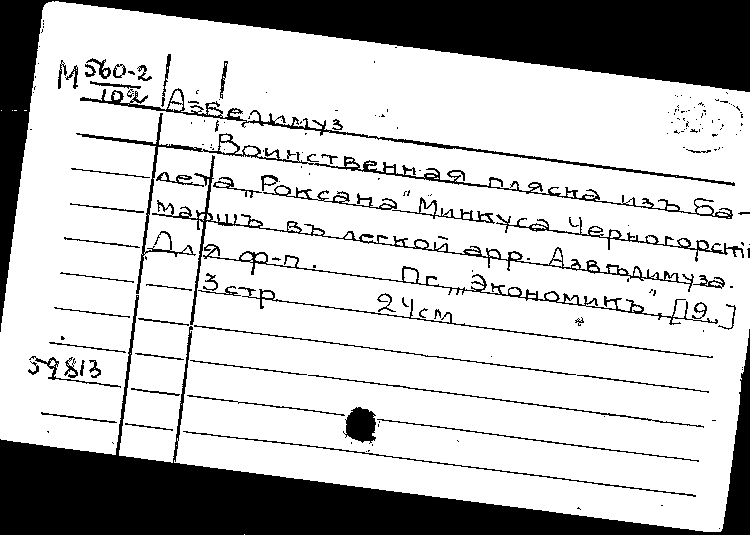 М 560-2
102
Азведимуз
Воинственная пляска изъ ба-
лета „Роксана" Минкуса Черногорскій
маршъ въ легкой арр. Азвѣдимуза.
Для ф-п. Пг., „Экономикъ", [19..]
3 стр. 24 см.
59813